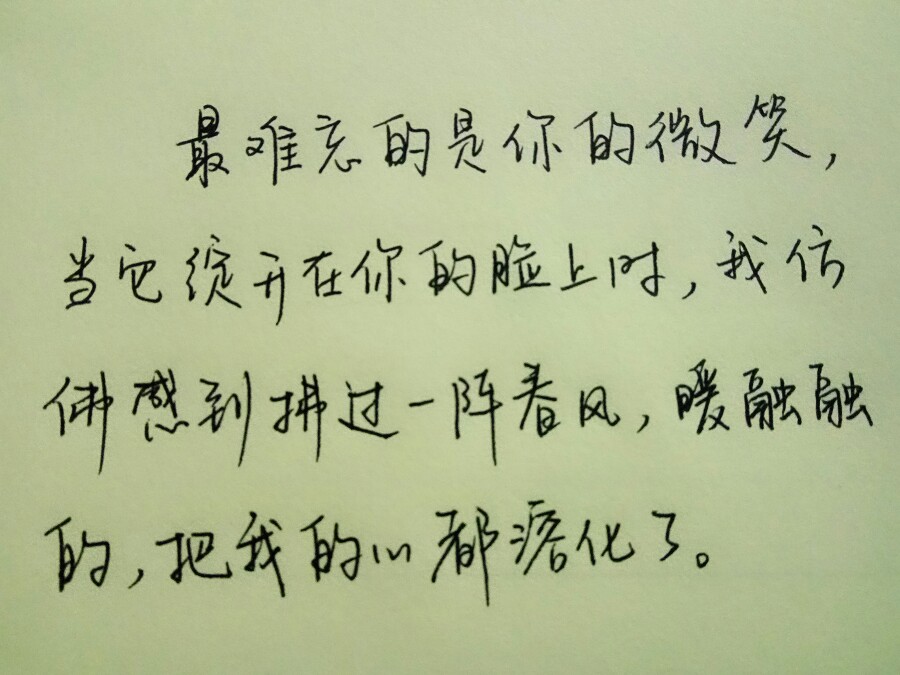 最难忘的是你的微笑,
当它绽开在你的脸上时,我仿
佛感到拂过一阵春风,暖融融
的,把我的心都溶化了。